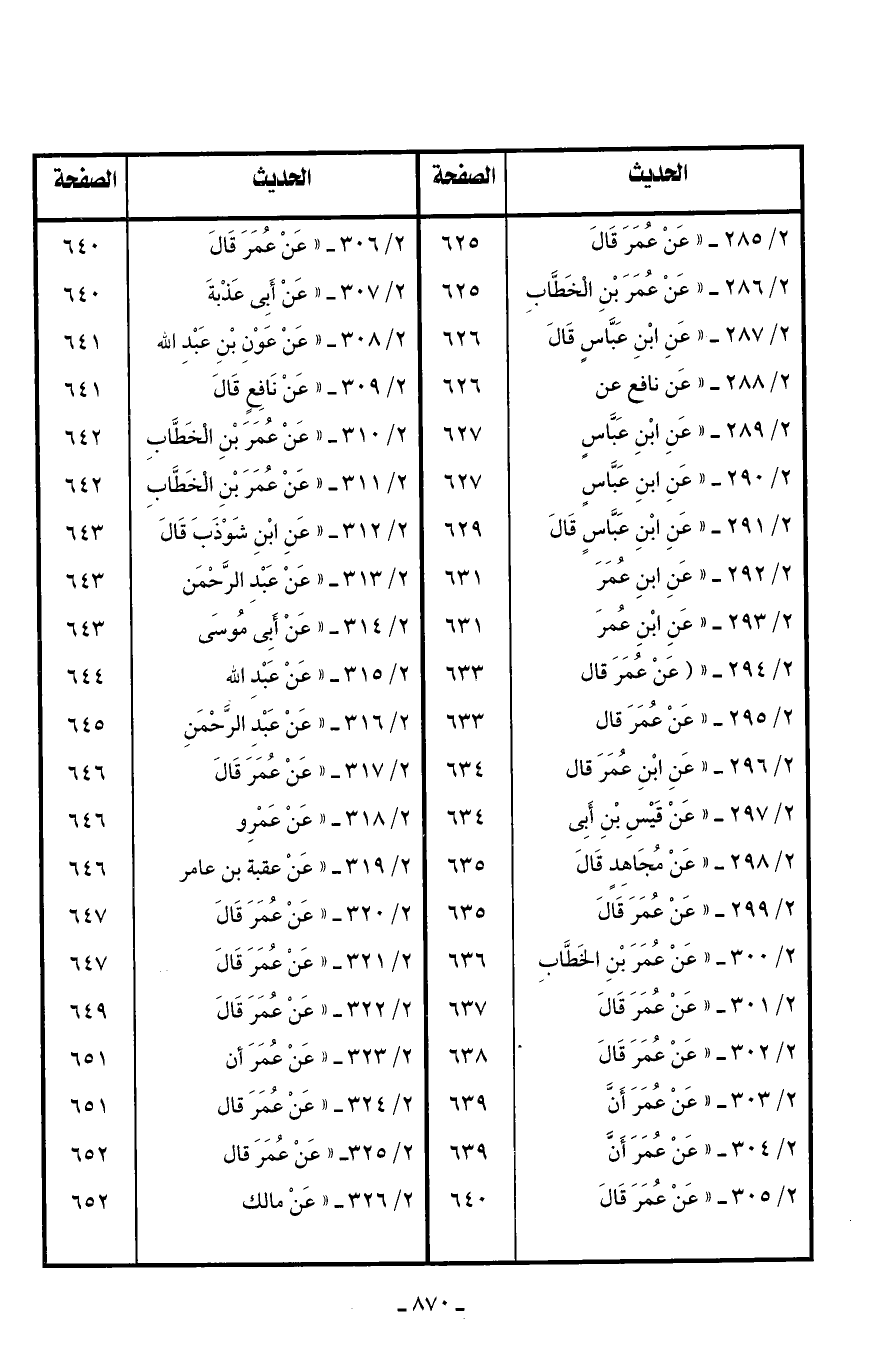 الحديث الصفحة الحديث الصفحة
٢/ ٢٨٥ ـ « عَنْ عُمَرَ قَالَ ٦٢٥ ٢/ ٣٠٦ ـ « عَنْ عُمَرَ قَالَ ٦٤٠
٢/ ٢٨٦ ـ « عَنْ عُمَرَ بْنِ الْخَطَّابِ ٦٢٥ ٢/ ٣٠٧ ـ « عَنْ أَبِى عَذْبةَ ٦٤٠
٢/ ٢٨٧ ـ « عَنِ ابْنِ عَبَّاسٍ قَالَ ٦٢٦ ٢/ ٣٠٨ ـ « عَنْ عَوْنِ بْنِ عَبْدِ الله ٦٤١
٢/ ٢٨٨ ـ « عَن نافع عن ٦٢٦ ٢/ ٣٠٩ ـ « عَنْ نَافِعٍ قَالَ ٦٤١
٢/ ٢٨٩ ـ « عَنِ ابْنِ عَبَّاسٍ ٦٢٧ ٢/ ٣١٠ ـ « عَنْ عُمَرَ بْنِ الْخَطَّابِ ٦٤٢
٢/ ٢٩٠ ـ « عَنِ ابنِ عَبَّاسٍ ٦٢٧ ٢/ ٣١١ ـ « عَنْ عُمَرَ بْنِ الْخَطَّابِ ٦٤٢
٢/ ٢٩١ ـ « عَنِ ابْنِ عَبَّاسٍ قَالَ ٦٢٩ ٢/ ٣١٢ ـ « عَنِ ابْنِ شَوْذَبَ قَالَ ٦٤٣
٢/ ٢٩٢ ـ « عَنِ ابنِ عُمَرَ ٦٣١ ٢/ ٣١٣ ـ « عَنْ عَبْدِ الرَّحْمَن ٦٤٣
٢/ ٢٩٣ ـ « عَنِ ابْنِ عُمرَ ٦٣١ ٢/ ٣١٤ ـ « عَنْ أَبِى مُوسَى ٦٤٣
٢/ ٢٩٤ ـ « ( عَنْ عُمَرَ قال ٦٣٣ ٢/ ٣١٥ ـ « عَنْ عَبْدِ الله ٦٤٤
٢/ ٢٩٥ ـ « عَنْ عُمَرَ قال ٦٣٣ ٢/ ٣١٦ ـ « عَنْ عَبْدِ الرَّحْمَنِ ٦٤٥
٢/ ٢٩٦ ـ « عَنِ ابْنِ عُمَرَ قال ٦٣٤ ٢/ ٣١٧ ـ « عَنْ عُمَرَ قَالَ ٦٤٦
٢/ ٢٩٧ ـ « عَنْ قَيْسِ بْنِ أَبِى ٦٣٤ ٢/ ٣١٨ ـ « عَنْ عَمْرِو ٦٤٦
٢/ ٢٩٨ ـ « عَنْ مُجَاهِدٍ قَالَ ٦٣٥ ٢/ ٣١٩ ـ « عَنْ عقبة بن عامر ٦٤٦
٢/ ٢٩٩ ـ « عَنْ عُمَرَ قَالَ ٦٣٥ ٢/ ٣٢٠ ـ « عَنْ عُمَرَ قَالَ ٦٤٧
٢/ ٣٠٠ ـ « عَنْ عُمَرَ بْنِ الخَطَّابِ ٦٣٦ ٢/ ٣٢١ ـ « عَنْ عُمَرَ قَالَ ٦٤٧
٢/ ٣٠١ ـ « عَنْ عُمَرَ قَالَ ٦٣٧ ٢/ ٣٢٢ ـ « عَنْ عُمَرَ قَالَ ٦٤٩
٢/ ٣٠٢ ـ « عَنْ عُمَرَ قَالَ ٦٣٨ ٢/ ٣٢٣ ـ « عَنْ عُمَرَ أن ٦٥١
٢/ ٣٠٣ ـ « عَنْ عُمَرَ أَنَّ ٦٣٩ ٢/ ٣٢٤ ـ « عَنْ عُمَرَ قال ٦٥١
٢/ ٣٠٤ ـ « عَنْ عُمَرَ أَنَّ ٦٣٩ ٢/ ٣٢٥ ـ « عَنْ عُمَرَ قال ٦٥٢
٢/ ٣٠٥ ـ « عَنْ عُمَرَ قَالَ ٦٤٠ ٢/ ٣٢٦ ـ « عَنْ مالك ٦٥٢
ـ ٨٧٠ ـ